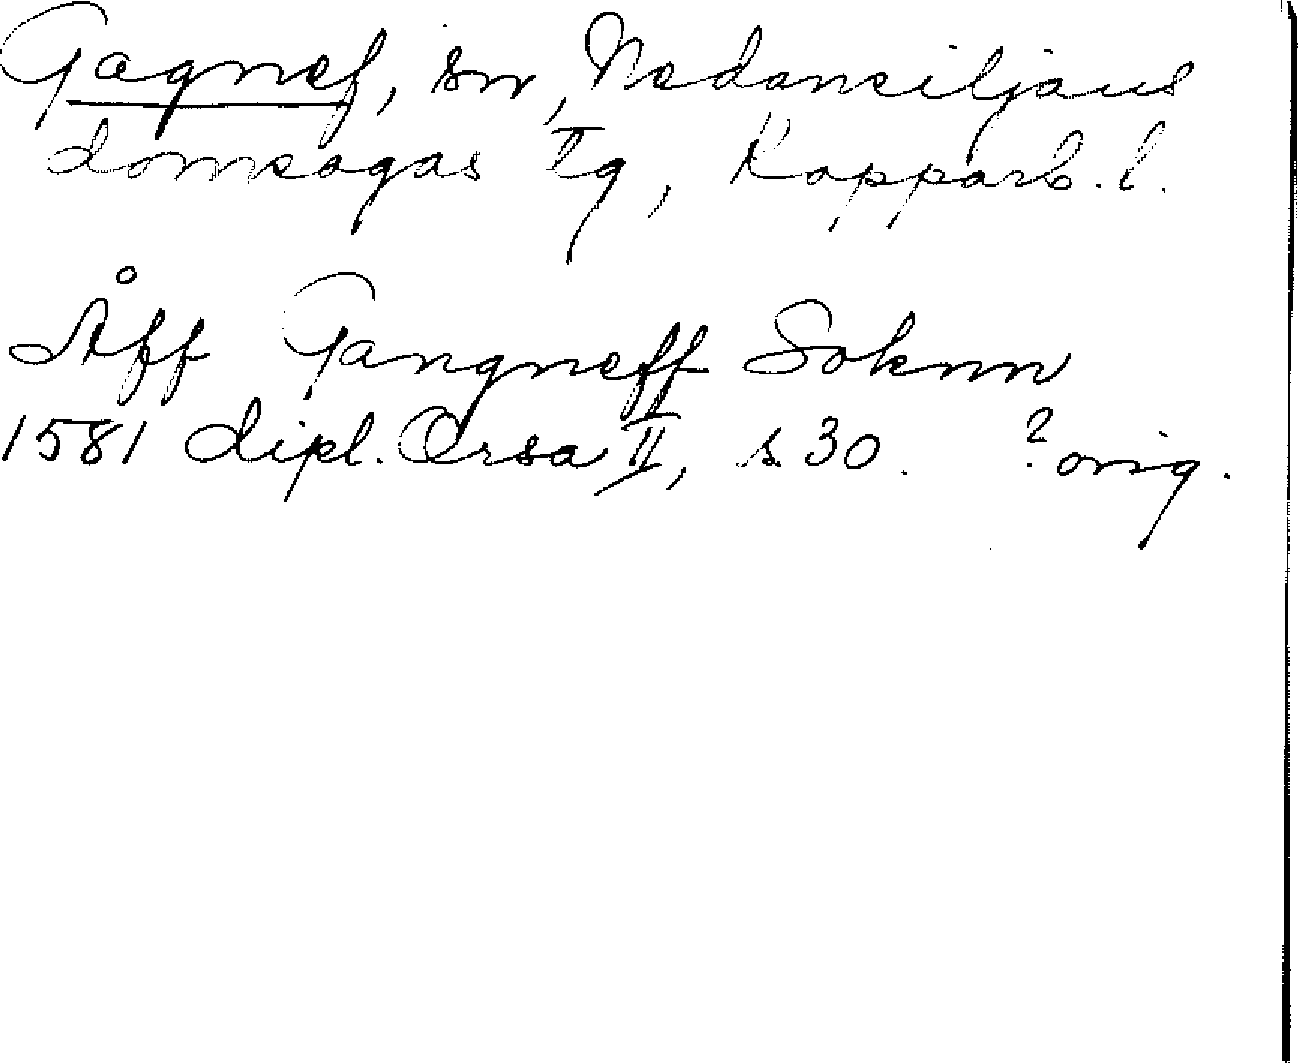 Gagnef, sn, Nedansiljans
domsagas tg, Kopparb. l.
Åff Gangneff Soknn
1581 dipl. Orsa II, s. 30. ? orig.